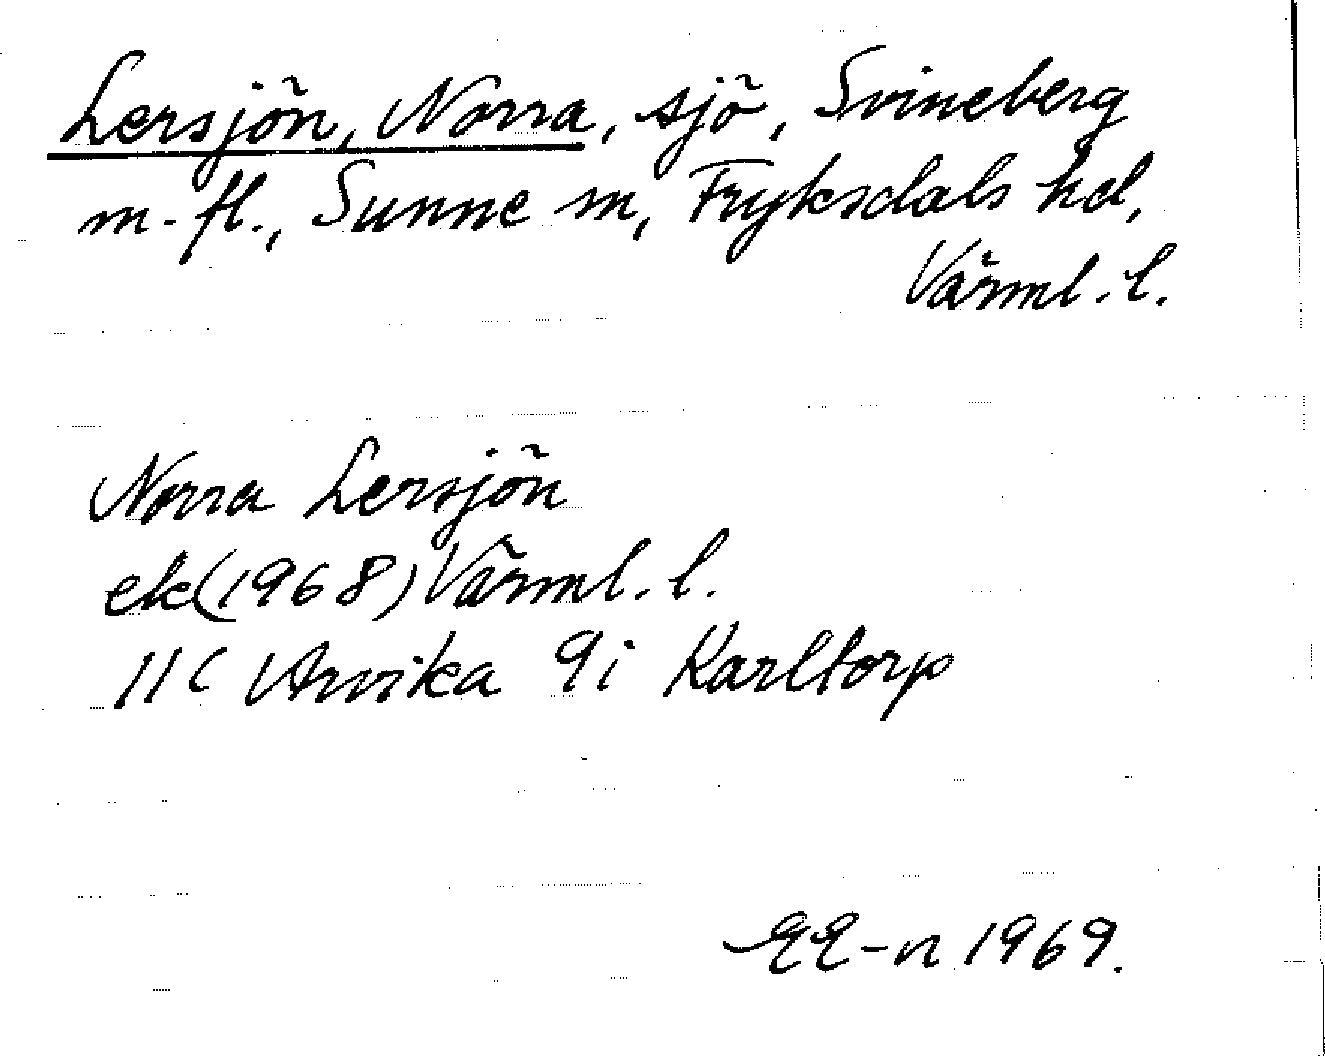 Lersjön, Norra, sjö, Svineberg
m. fl., Sunne sn, Fryksdals hd,
Värml. l.
Norra Lersjön
ek (1968) Värml. l.
11C Arvika 9i Karltorp
EE-n 1969.